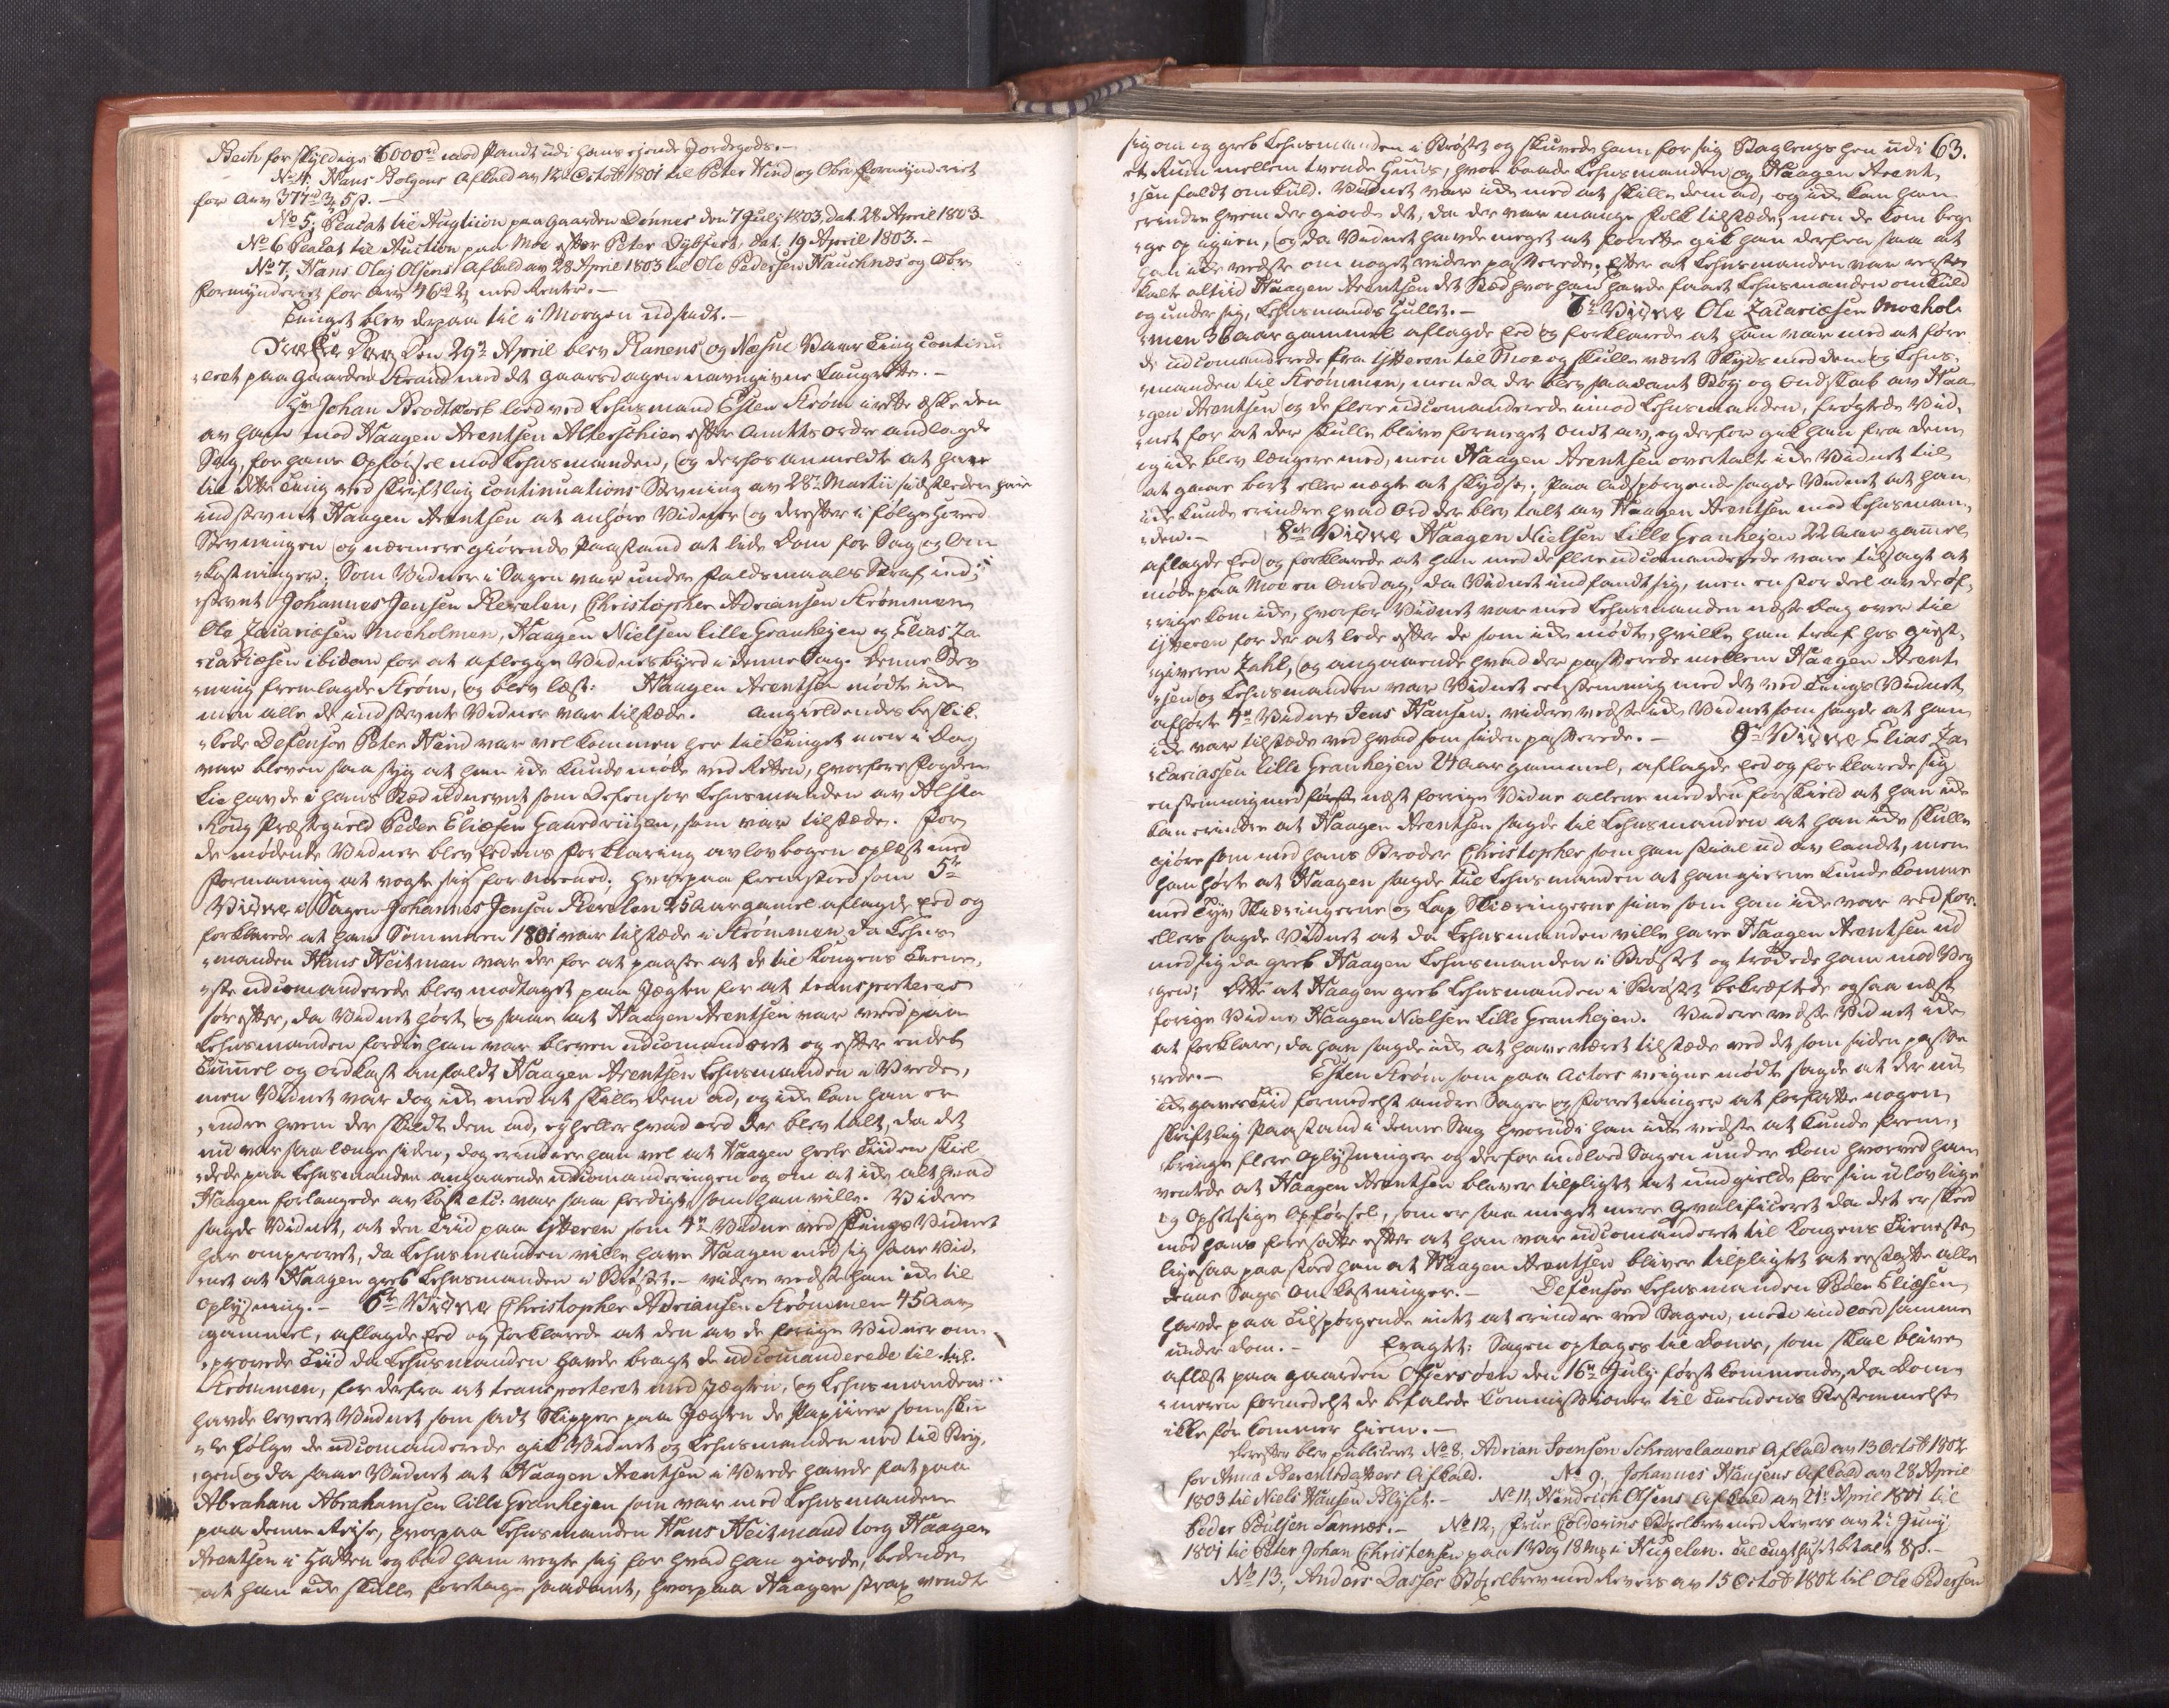 Bech for skyldige 6000rd mod Pandt udi hans ejende Jordegods.-
No 4. Hans Bolgens Afkald av 12 Octob 1801 til Peter Hind og Over formynderiet
for Arv 377rd 3 5s.-
No 5, Placat til Auction paa Gaarden Dønnes den 7 July 1803, dat. 28 April 1803.
No 6 Placat til Auction paa Moe efter Peter Dybfest, dat. 19 April 1803.-
No 7, Hans Olaj Olsens Afkald av 28 April 1803 til Ole Pedersen Hauchnæs og Over
formynderiet for Arv 46rd 2 med Renter.-
Tinget blev derpaa til i Morgen udsadt.-
Den 29de April blev Ranens og Næsne Vaar Ting continu
eret paa Gaarden Strand med det gaarsdagen navngivne Laugrette.-
Hr Johan Brodtkorb lod ved Lehnsmand Esten Strøm i rette æske den
av ham mod Haagen Arentsen Alterschier efter Amtets ordre andlagde
Sag, for hans Opførsel mod Lehnsmanden, og derhos anmeldte at have
til dette Ting ved skriftlig Continuations Stevning av 28de Martii sidstleden
indstevnt Haagen Arentsen at anhøre Vidner og derefter i følge hoved
Stevningen og nærmere giørende Paastand at lide Dom for Sag og Om
kostninger. Som Vidner i Sagen var under Faldsmaals Straf ind
stevnt Johannes Jensen Revelen, Christopher Adriansen Strømmen
Ole Zacariæsen Moeholmen, Haagen Nielsen lille Granhejen og Elias Za
cariæsen ibidem for at aflegge Vidnesbyrd i denne Sag. Denne Stev
ning fremlagde Strøm, og blev læst. Haagen Arentsen mødte icke
men alle de indstevnte Vidner var tilstæde. Angieldendes beskik
kede Defensor Peter Hind var vel kommen her til Tinget men i Dag
var bleven saa syg at han icke kunde møde ved Retten, hvorfore Fogden
Lie havde i hans Stæd udnevnt som Defensor Lehnsmanden av Alsta
houg Præstegield Peder Eliæsen Haardviigen, som var tilstæde. For
de mødende Vidner blev Eedens forklaring av lovbogen oplæst med
Formaning at vogte sig for Meened, hvorpaa fremstod som 5te
Vidne i Sagen Johannes Jensen Revelen 25 Aar gamel aflagde Eed og
forklarede at han Sommeren 1801 var tilstæde i Strømmen da Lehns
manden Hans Heitman var der for at paasee at de til Kongens Tiene
ste udcomanderede blev modtaget paa Jægten for at transporteres
sør efter, da Vidnet hørte og saae at Haagen Arentsen var vred paa
Lehnsmanden fordie han var bleven udcomanderet og efter endel
Tummel og ordkast anfaldt Haagen Arentsen Lehnsmanden i Vrede,
men Vidnet var dog icke med at skille dem ad, og icke kan han er
indre hvem der skilte dem ad, ey heller hvad ord der blev talt, da det
nu var saa længe siden, dog erindrer han vel at Haagen heele Tiiden skiel
dede paa Lehnsmanden angaaende udcomanderingen og om at icke alt hvad
Haagen forlangede av kost etc: var saa ferdigt som han ville. Videre
sagde Vidnet, at den Tiid paa Ytteren som 4de Vidne ved Tings Vidnet
har omprovet, da Lehnsmanden ville have Haagen med sig saae Vid
net at Haagen greb Lehnsmanden i Brøstet.- videre vedste han icke til
Oplysning.- 6te Vidne Christopher Adriansen Strømmen 45 Aar
gammel, aflagde Eed og forklarede at den av de forige Vidner om
provede Tiid da Lehnsmanden havde bragt de udcomanderede til
Strømmen, for derfra at transporteret med Jægten, og Lehnsmanden
havde leveret Vidnet som sadt Skipper paa Jægten de Papiirer som skul
le følge de udcomanderede gik Vidnet og Lehnsmanden ned til Bryg
gen og da saae Vidnet at Haagen Arentsen i Vrede havde fat paa
Abraham Abrahamsen lille Granhejen som var med Lehnsmanden
paa denne Rejse, hvorpaa Lehnsmanden Hans Heitmand tog Haagen
Arentsen i Hatten og bad ham vogte sig for hvad han giorde, bedende
at han icke skulle foretage saadant, hvorpaa Haagen strax vendte
63.
sig om og greb Lehnsmanden i Brøstet og skuvede ham for sig Baglengs hen udi
et Rum mellem tvende Huus, hvor baade Lehnsmanden og Haagen Arent
sen faldt omkuld. Vidnet var icke med at skille dem ad, og icke kan han
erindre hvem der giorde det, da der var mange folk tilstæde, men de kom beg
ge op igien, og da Vidnet havde meget at forrette gik han derfra saa at
han icke vedste om noget videre passerede; efter at Lehnsmanden var rejst
kalte altiid Haagen Arentsen det Stæd hvor han havde faaet Lehnsmanden omkuld
og under sig, Lehnsmands Hullet.- 7de Vidne Ole Zacariæsen Moehol
men 36 Aar gammel aflagde Eed og forklarede at han var med at føre
de udcomanderede fra Ytteren til Moe og skulle været Skyds med dem og Lehns
manden til Strømmen, men da der blev saadant Støy og Ondskab av Haa
gen Arentsen og de flere udcomanderede imod Lehnsmanden, frøgtede Vid
net for at der skulle blive formeget Ondt av, og derfor gik han fra dem
og icke blev længere med, men Haagen Arentsen overtalte icke Vidnet til
at gaae bort eller nægte at skydse. Paa tilspørgende sagde Vidnet at han
icke kunde erindre hvad Ord der blev talt av Haagen Arentsen mod Lehnsman
den.- 8de Vidne Haagen Nielsen Lille Granhejen 22 Aar gammel
aflagde Eed og forklarede at han med de flere udcomanderede vare tilsagt at
møde paa Moe en Onsdag, da Vidnet indfandt sig, men en stor deel av de øf
rige kom icke, hvorfor Vidnet var med Lehnsmanden næste Dag over til
Ytteren for der at lede efter de som icke mødte, hvilke han traf hos giest
giveren Zahl, og angaaende hvad der passerede mellem Haagen Arent
sen og Lehnsmanden var Vidnet eenstemmig med det ved Tings Vidnet
afhørte 4de Vidne Jens Hansen. videre vedste icke Vidnet som sagde at han
icke var tilstæde ved hvad som siden passerede.- 9de Vidne Elias Za
cariassen lille Granhejen 24 Aar gammel, aflagde Eed og forklarede sig
eenstemmig med næst forrige Vidne allene med den forskield at han icke
kan erindre at Haagen Arentsen sagde til Lehnsmanden at han icke skulle
giøre som med hans Broder Christopher som han stial ud av landet, men
han hørte at Haagen sagde til Lehnsmanden at han gierne kunde komme
med Tyv Skiæringerne og Lap Skiæringerne sine som han icke var ved for.
ellers sagde Vidnet at da Lehnsmanden ville have Haagen Arentsen ud
med sig da greb Haagen Lehnsmanden i Brøstet og trøckede ham mod Veg
gen; Dette at Haagen greb Lehnsmanden i Brøstet bekræftede ogsaa næst
forige Vidne Haagen Nielsen Lille Granhejen. Videre vedste Vidnet icke
at forklare, da han sagde icke at have været tilstæde ved det som siden passe
rede.- Esten Strøm som paa Actors veigne mødte sagde at der nu
icke gaves Tiid formedelst andre Sager og Forretninger at forfatte nogen
skriftlig Paastand i denne Sag hvorudi han icke vedste at kunde frem
bringe flere Oplysninger og derfor indlod Sagen under Dom hvorved han
ventede at Haagen Arentsen bliver tilpligtet at undgielde for sin ulovlige
og Opsetsige Opførsel, som er saa meget mere Qvalificeret da det er skeed
mod hans foresatte efter at han var udcomanderet til Kongens Tieneste
ligesaa paastod han at Haagen Arentsen bliver tilpligtet at erstatte alle
denne Sags Omkostninger.- Defensor Lehnsmanden Peder Eliæsen
havde paa Tilspørgende intet at erindre ved Sagen, men indlod samme
under Dom.- Eragtet: Sagen optages til Doms, som skal blive
aflæst paa gaarden Offersøen den 16de July først kommende, da Dom
meren formedelst de befalede Commissioner til Tiendens Bestemmelse
ikke før kommer hiem.-
Derefter blev publiceret No 8. Adrian Svensen Schravelaaens Afkald av 13 Octob 1802
for Anna Berentsdatters Afkald. No 9, Johannes Hansens Afkald av 28 April
1803 til Niels Hansen Blyset.- No 11, Hendrich Olsens Afkald av 21de April 1801 til
Peder Poulsen Sannæs.- No 12, Frue Colderins Bøxelbrev med Revers av 2de Juny
1801 til Peter Johan Christensen paa 1 Vog 18 mk i Hugelen. til Tugthuset betalt 8s.-
No 13, Anders Dasses Bøxelbrev med Revers av 15 Octob 1802 til Ole Pedersen